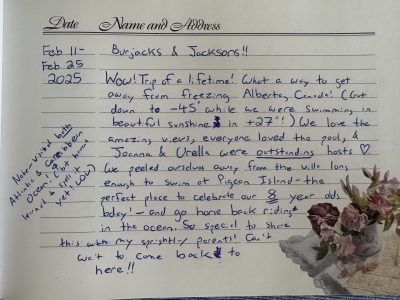 Date Name and Address
Feb 11- Burjacks & Jacksons!!
Feb 25
2025 Wow! Trip of a lifetime! What a way to get
away from freezing Alberta, Canada! (Got
down to -45° while we were swimming in
beautiful sunshine in +27°!) We love the
amazing views, everyone loved the pool, &
Joanna & Urella were outstanding hosts ♡
We peeled ourselves away from the villa long
enough to swim at Pigeon Island - the
perfect place to celebrate our 8 year olds
bday! - and go horse back riding
in the ocean. So special to share
this with my sprightly parents! Can't
wait to come back to
here!!
Note - Visited both
Atlantic & Caribbean
Ocean. (No board
learned to spell it
yet LOL)